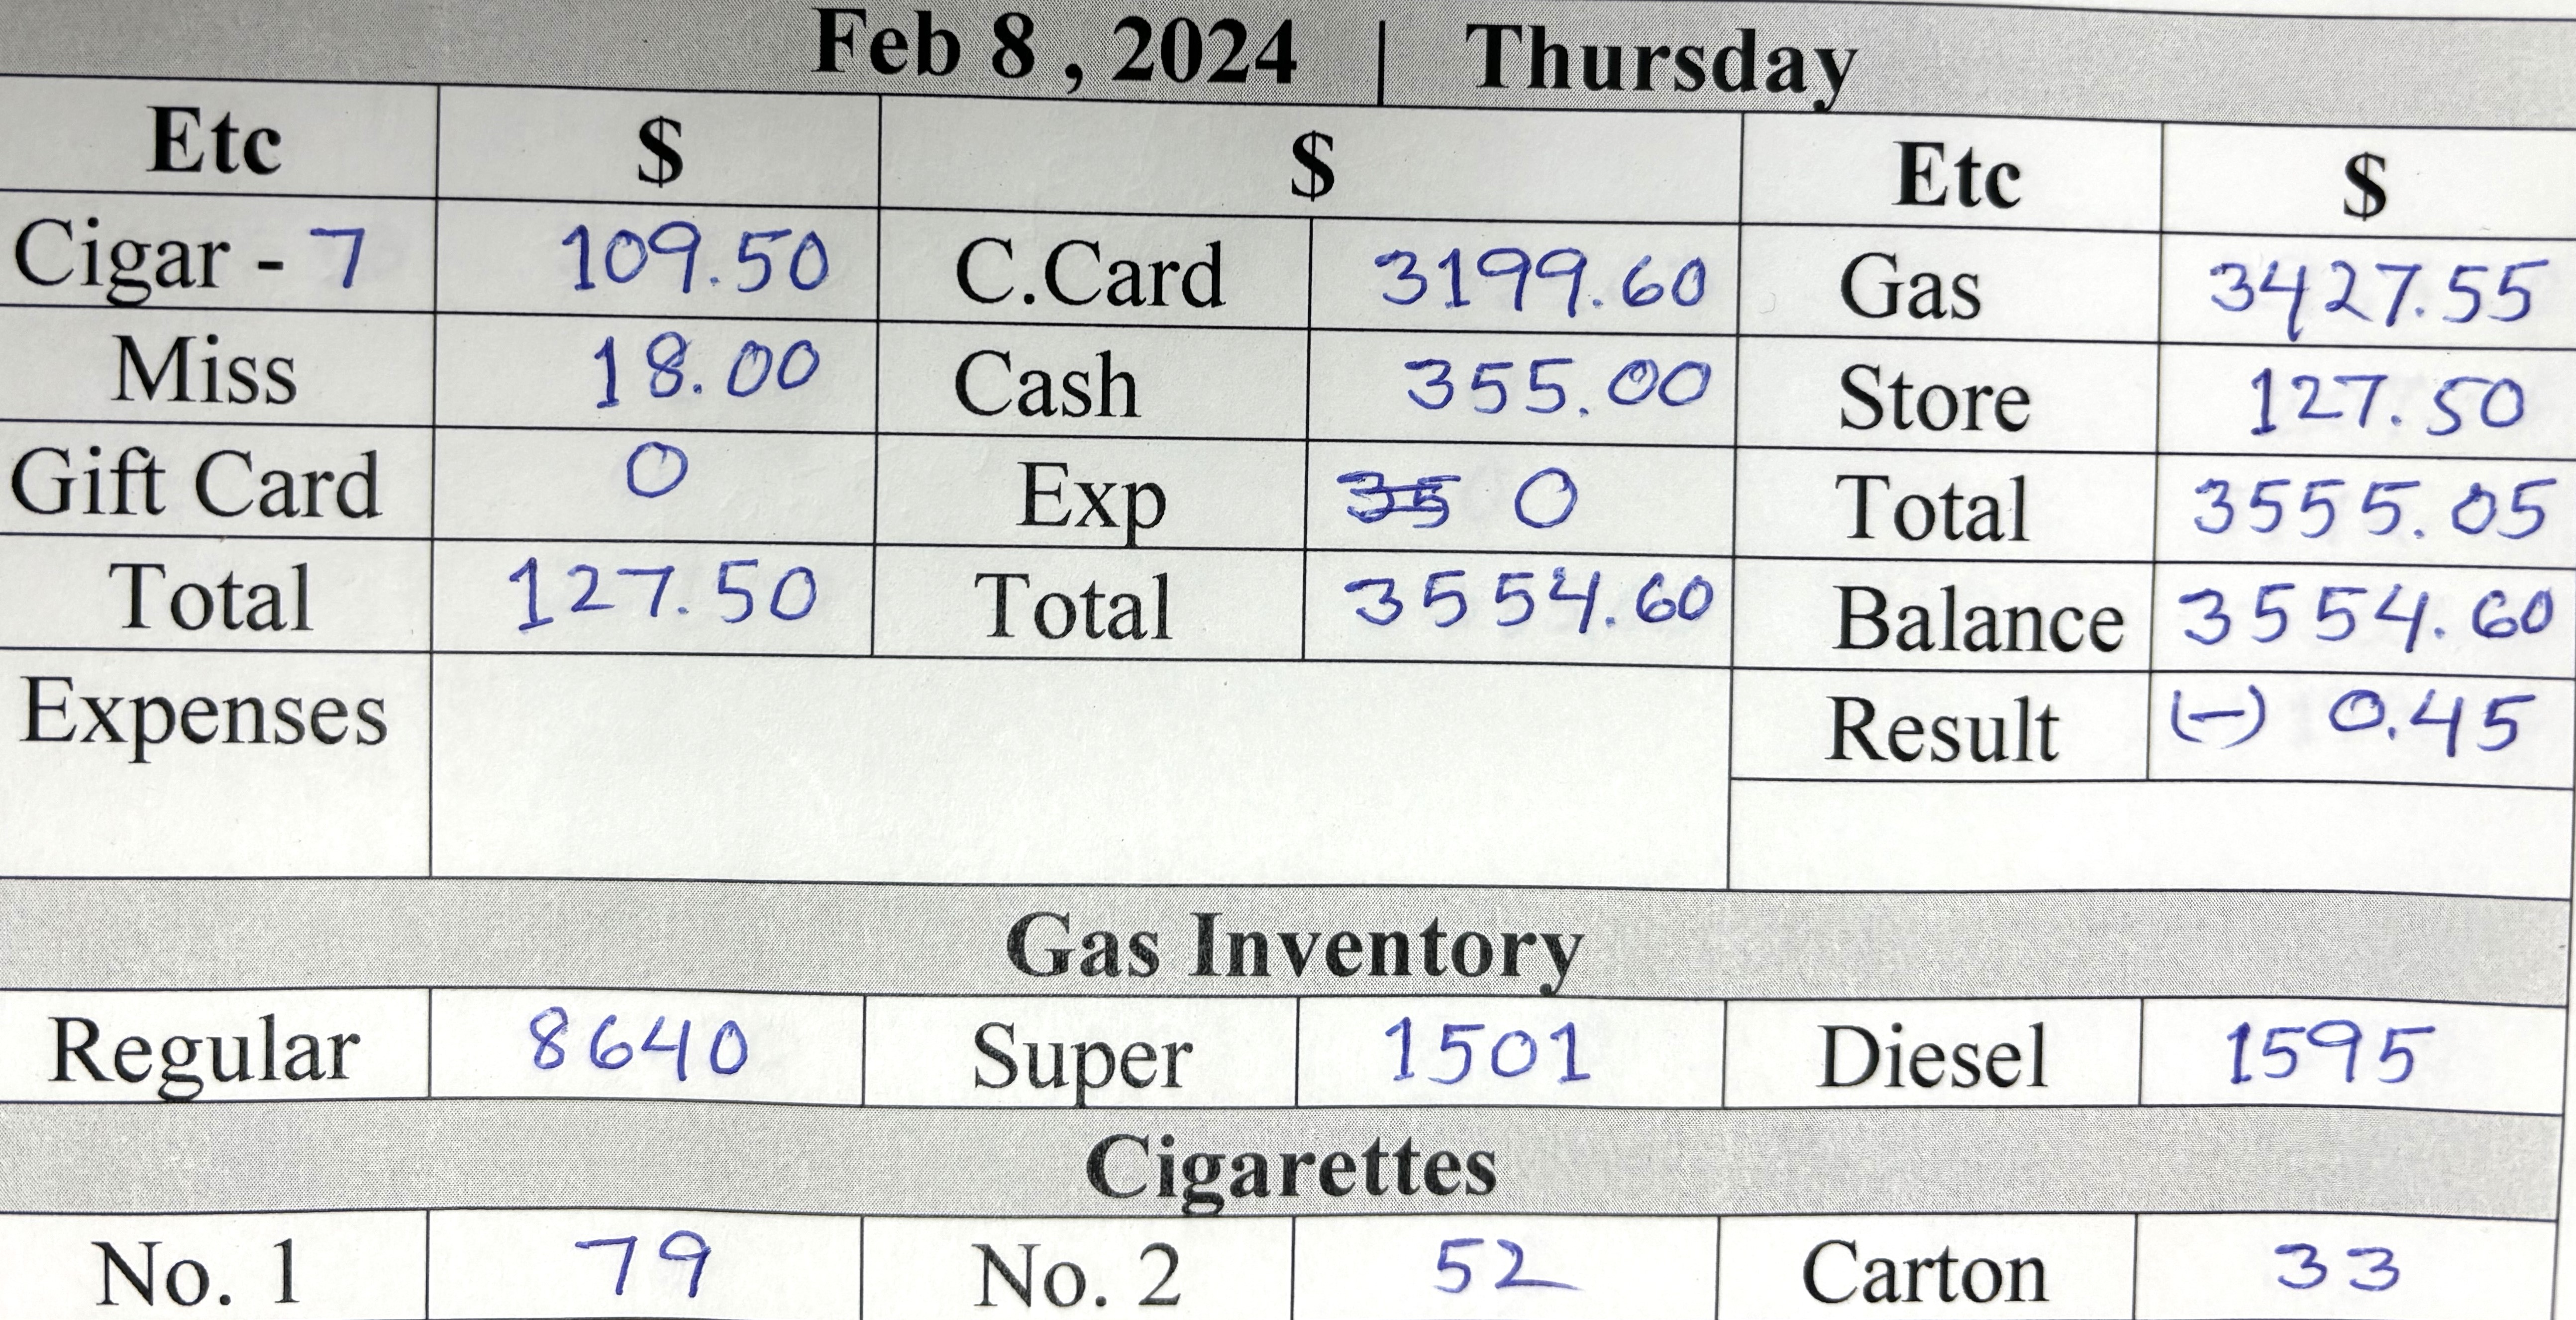 Feb 8 , 2024 | Thursday
Etc $ $ Etc $
Cigar - 7 109.50 C.Card 3199.60 Gas 3427.55
Miss 18.00 Cash 355.00 Store 127.50
Gift Card 0 Exp 35 0 Total 3555.05
Total 127.50 Total 3554.60 Balance 3554.60
Expenses Result (-) 0.45
Gas Inventory
Regular 8640 Super 1501 Diesel 1595
Cigarettes
No. 1 79 No. 2 52 Carton 33